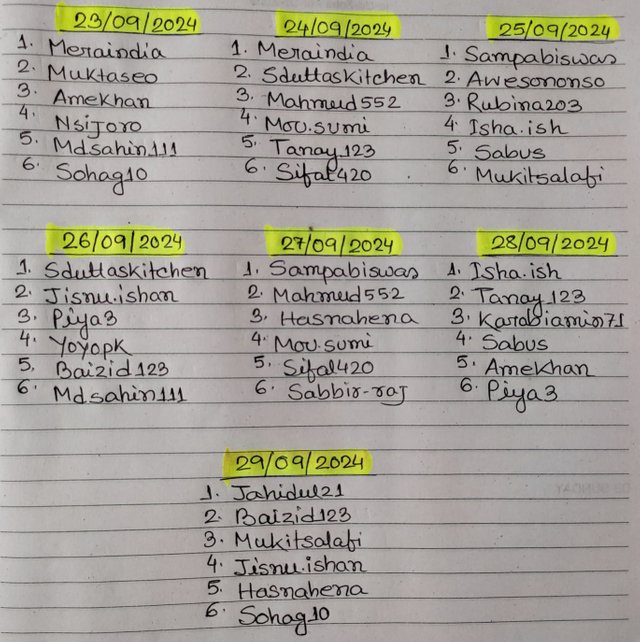 23/09/2024
1. Meraindia
2. Muktaseo
3. Amekhan
4. Nsijoro
5. Mdsahin111
6. Sohag10
24/09/2024
1. Meraindia
2. Sduttaskitchen
3. Mahmud552
4. Mou.sumi
5. Tanay123
6. Sifat420
25/09/2024
1. Sampabiswas
2. Awesononso
3. Rubina203
4. Isha.ish
5. Sabus
6. Mukitsalafi
26/09/2024
1. Sduttaskitchen
2. Jisnu.ishan
3. Piya3
4. Yoyopk
5. Baizid123
6. Mdsahin111
27/09/2024
1. Sampabiswas
2. Mahmud552
3. Hasnahena
4. Mou.sumi
5. Sifat420
6. Sabbir-raj
28/09/2024
1. Isha.ish
2. Tanay123
3. Karabiamin71
4. Sabus
5. Amekhan
6. Piya3
29/09/2024
1. Jahidul21
2. Baizid123
3. Mukitsalafi
4. Jisnu.ishan
5. Hasnahena
6. Sohag10